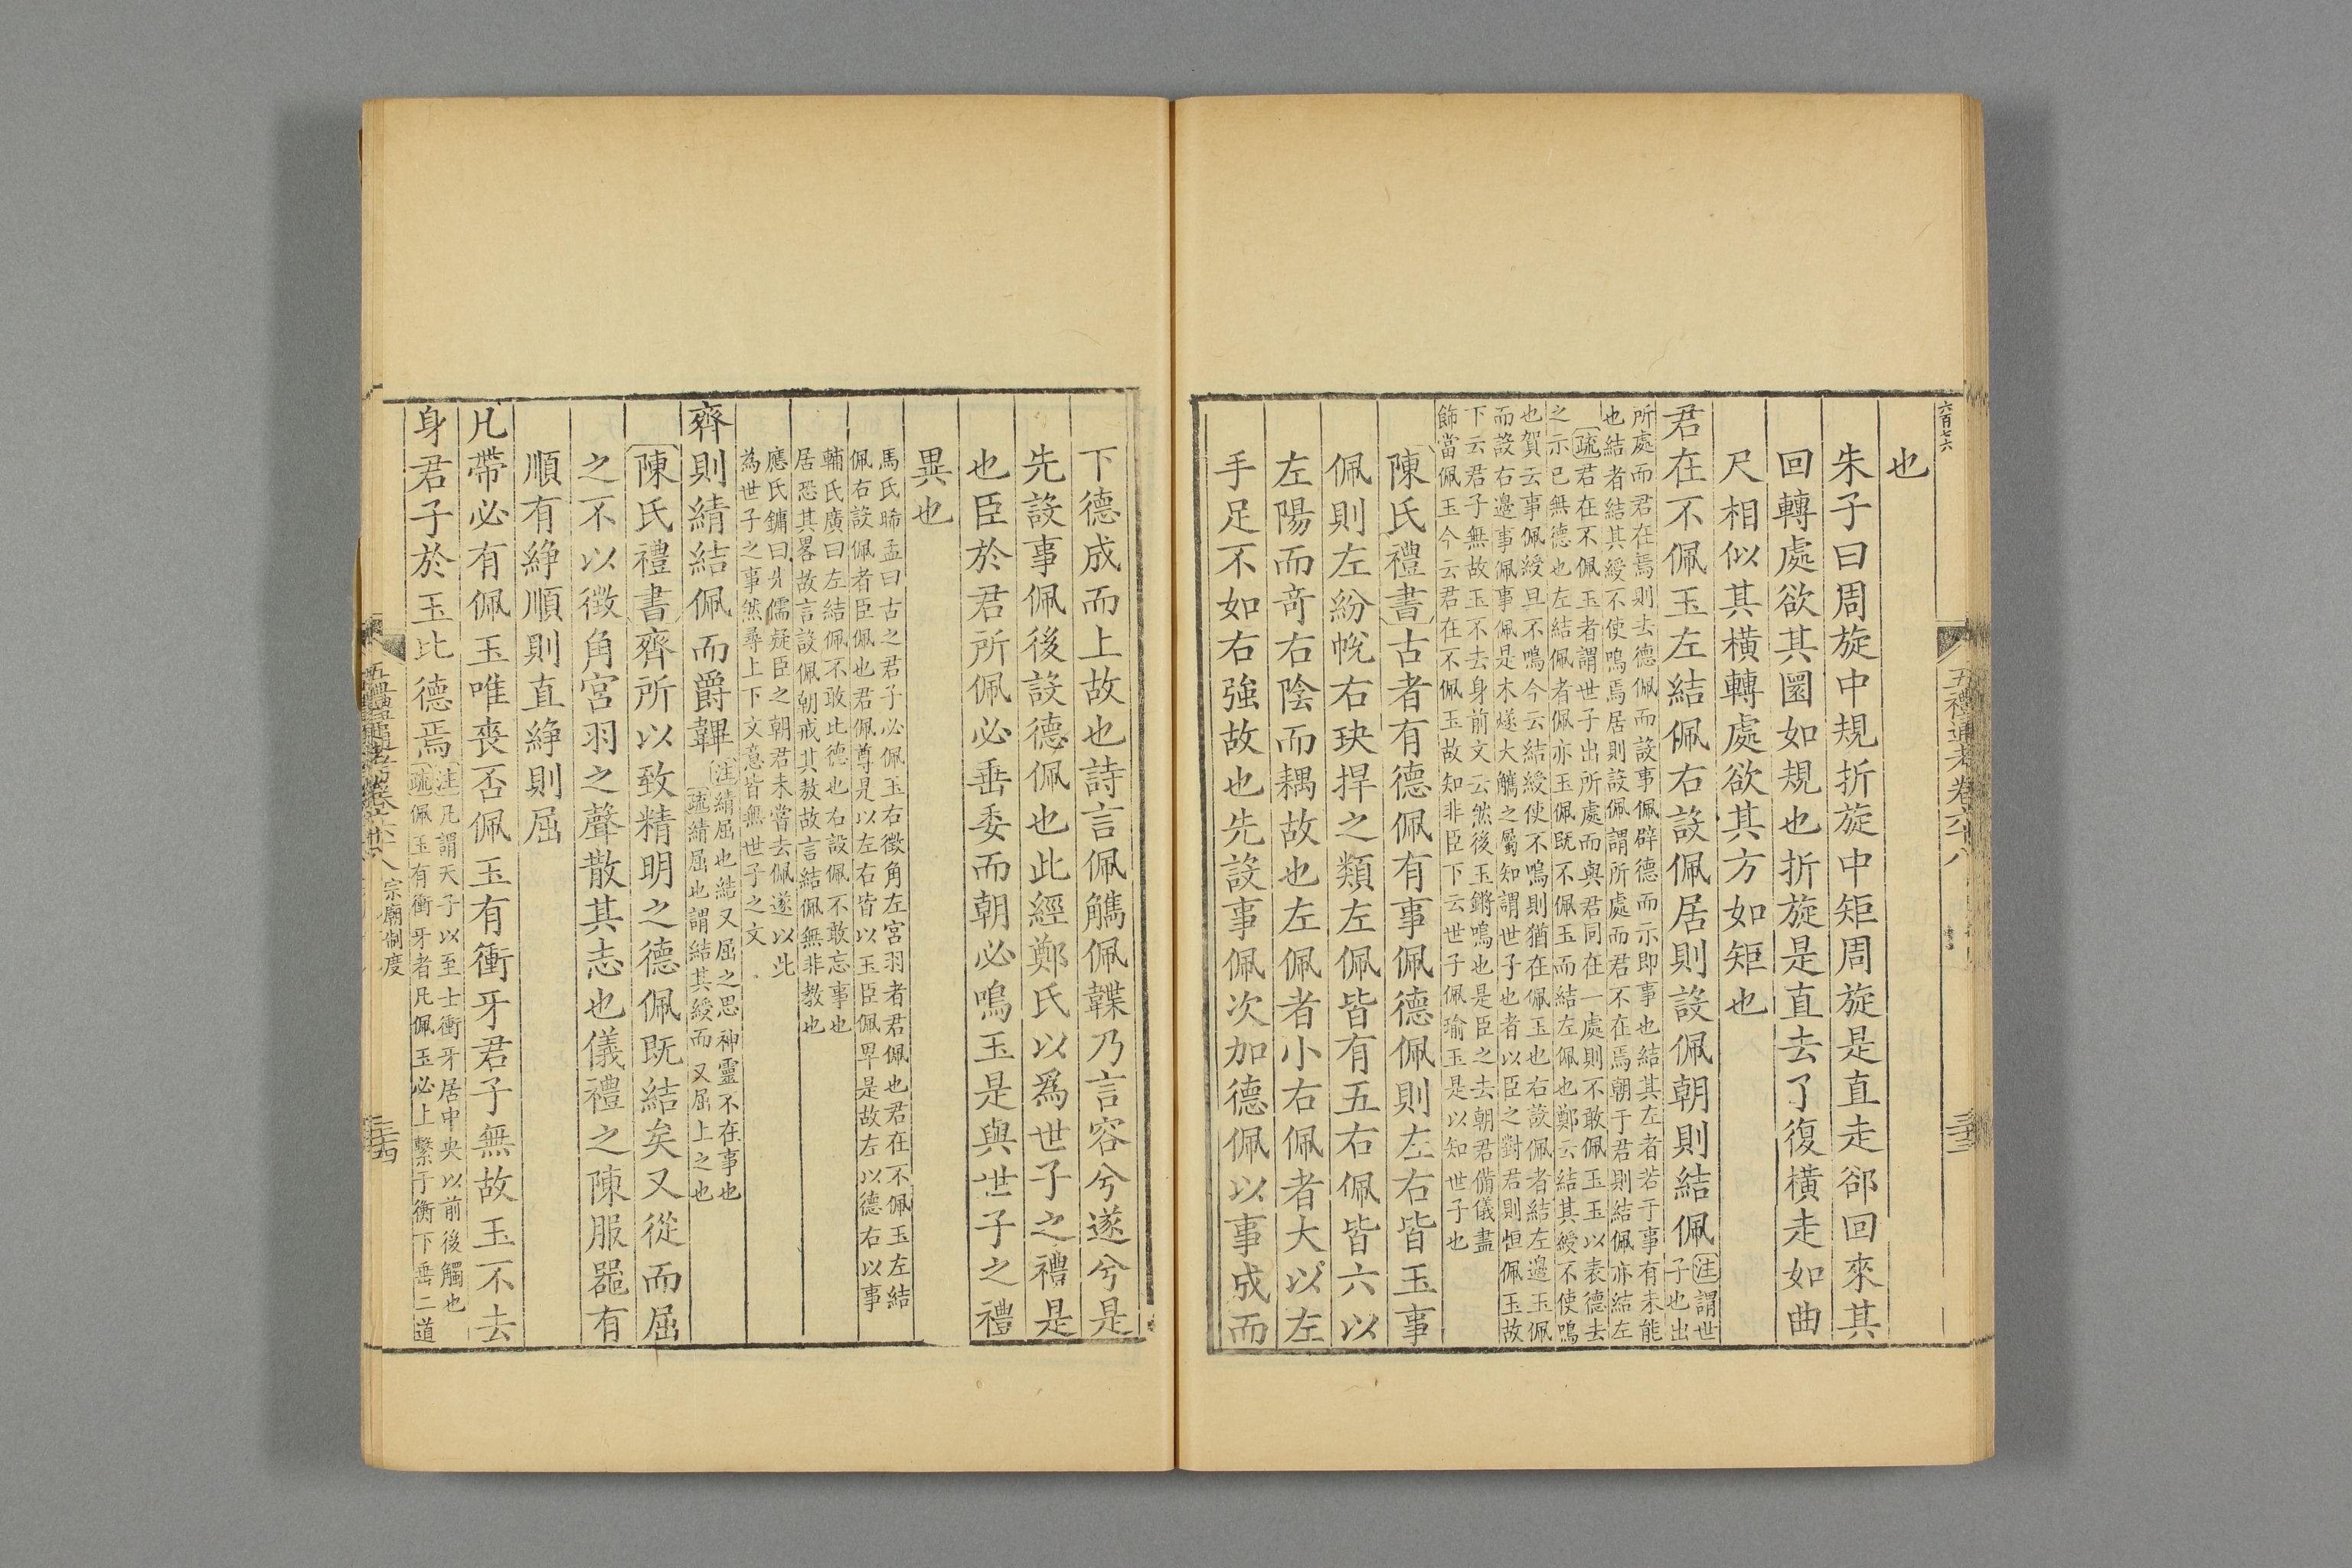 六百七六
五禮通考卷六十八
三三
也
朱子曰周旋中規折旋中矩周旋是直走卻回來其
回轉處欲其圜如規也折旋是直去了復橫走如曲
尺相似其橫轉處欲其方如矩也
君在不佩玉左結佩右設佩居則設佩朝則結佩
注謂世
子也出
所處而君在焉則去德佩而設事佩辟德而示即事也結其左者若于事有未能
也結者結其綬不使鳴焉居則設佩謂所處而君不在焉朝于君則結佩亦結左
疏君在不佩玉者謂世子出所處而與君同在一處則不敢佩玉玉以表德去
之示已無德也左結佩者佩亦玉佩既不佩玉而結左佩也鄭云結其綬不使鳴
也賀云事佩綬且不鳴今云結綬使不鳴則猶在佩玉也右設佩者結左邊玉佩
而設右邊事佩事佩是木燧大觿之屬知謂世子也者以臣之對君則恒佩玉故
下云君子無故玉不去身前文云然後玉鏘鳴也是臣之去朝君備儀盡
飾當佩玉今云君在不佩玉故知非臣下云世子佩瑜玉是以知世子也
陳氏禮書古者有德佩有事佩德佩則左右皆玉事
佩則左紛帨右玦捍之類左佩皆有五右佩皆六以
左陽而奇右陰而耦故也左佩者小右佩者大以左
手足不如右強故也先設事佩次加德佩以事成而
下德成而上故也詩言佩觿佩韘乃言容兮遂兮是
先設事佩後設德佩也此經鄭氏以爲世子之禮是
也臣於君所佩必垂委而朝必鳴玉是與世子之禮
異也
馬氏晞孟曰古之君子必佩玉右徵角左宮羽者君佩也君在不佩玉左結
佩右設佩者臣佩也君佩尊是以左右皆以玉臣佩卑是故左以德右以事
輔氏廣曰左結佩不敢比德也右設佩不敢忘事也
居恐其畧故言設佩朝戒其敖故言結佩無非教也
應氏鏞曰先儒疑臣之朝君未嘗去佩遂以此
為世子之事然尋上下文意皆無世子之文
齊則綪結佩而爵韠
注綪屈也結又屈之思神靈不在事也
疏綪屈也謂結其綬而又屈上之也
陳氏禮書齊所以致精明之德佩既結矣又從而屈
之不以徵角宮羽之聲散其志也儀禮之陳服器有
順有綪順則直綪則屈
凡帶必有佩玉唯喪否佩玉有衝牙君子無故玉不去
身君子於玉比德焉
注凡謂天子以至士衝牙居中央以前後觸也
疏佩玉有衝牙者凡佩玉必上繫于衡下垂二道
宗廟制度
三十四